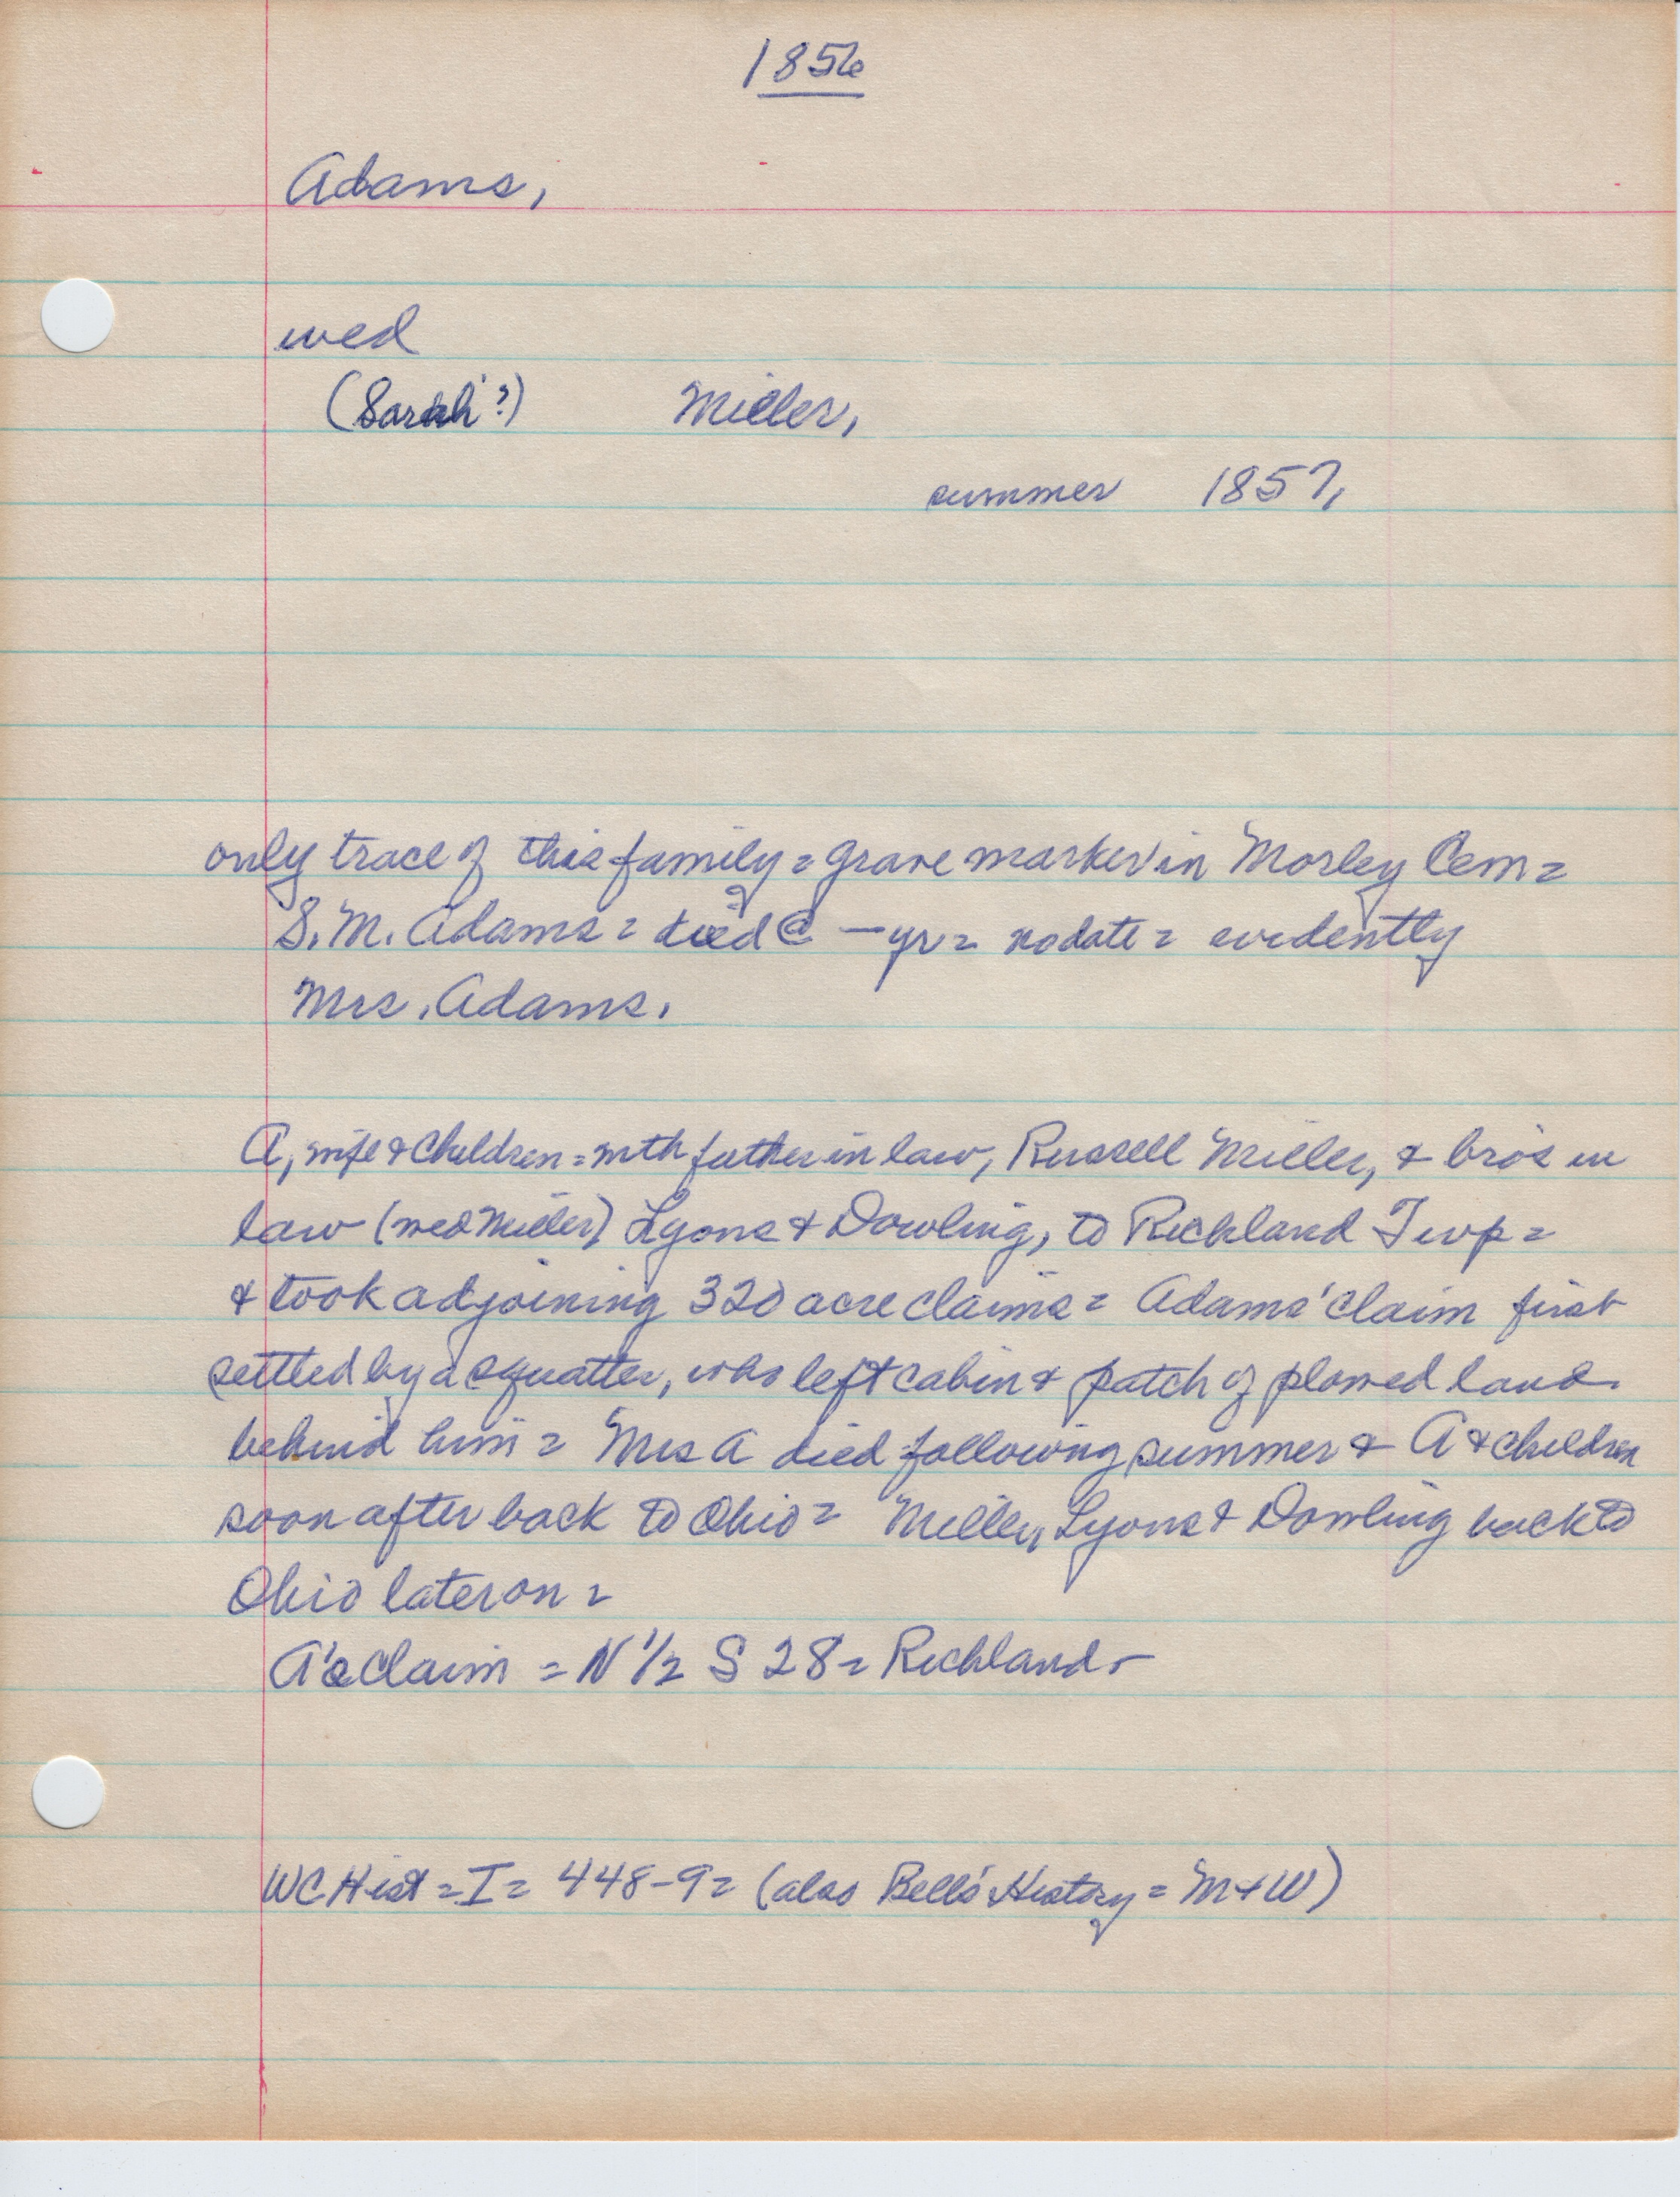 1856
Adams,
wed
(Sarah?) Miller,
summer 1857,
only trace of this family = grave marker in Morley Cem =
S. M. Adams = died @ — yr = no date = evidently
Mrs. Adams.
A, wife & children = with father in law, Russell Miller, & bro's in
law (wed Miller) Lyons & Dowling, to Richland Twp =
& took adjoining 320 acre claims = Adams' claim first
settled by a squatter, who left cabin & patch of plowed land
behind him = Mrs A died following summer & A & children
soon after back to Ohio = Miller, Lyons & Dowling back to
Ohio later on =
A's claim = N 1/2 S 28 = Richland -
WC Hist = I = 448-9 = (also Bell's History = M + W)